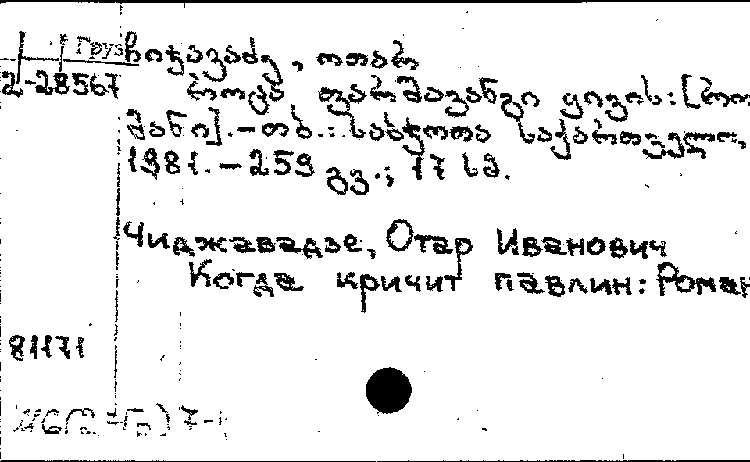 Груз
ჩიჯავაძე, ოთარ
2-28567
როცა ფარშავანგი ყივის: [რო
მანი].—თბ.: საბჭოთა საქართველო,
1981.—259 გვ.; 17 სმ.
Чиджавадзе, Отар Иванович
Когда кричит павлин: Роман
81171